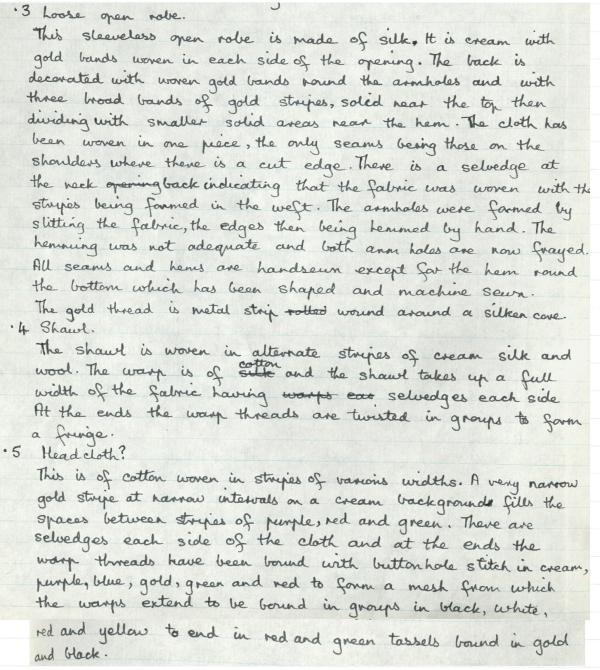 ·3 Loose open robe.
This sleeveless open robe is made of silk. It is cream with
gold bands woven in each side of the opening. The back is
decorated with woven gold bands round the armholes and with
three broad bands of gold stripes, solid near the top then
dividing with smaller solid areas near the hem. The cloth has
been woven in one piece, the only seams being those on the
shoulders where there is a cut edge. There is a selvedge at
the neck opening back indicating that the fabric was woven with the
stripes being formed in the weft. The armholes were formed by
slitting the fabric, the edges then being hemmed by hand. The
hemming was not adequate and both arm holes are now frayed.
All seams and hems are handsewn except for the hem round
the bottom which has been shaped and machine sewn.
The gold thread is metal strip rolled wound around a silken core.
·4 Shawl.
The shawl is woven in alternate stripes of cream silk and
wool. The warp is of silk cotton and the shawl takes up a full
width of the fabric having warps selvedges each side
At the ends the warp threads are twisted in groups to form
a fringe.
·5 Headcloth?
This is of cotton woven in stripes of various widths. A very narrow
gold stripe at narrow intervals on a cream background fills the
spaces between stripes of purple, red and green. There are
selvedges each side of the cloth and at the ends the
warp threads have been bound with buttonhole stitch in cream,
purple, blue, gold, green and red to form a mesh from which
the warps extend to be bound in groups in black, white,
red and yellow to end in red and green tassels bound in gold
and black.